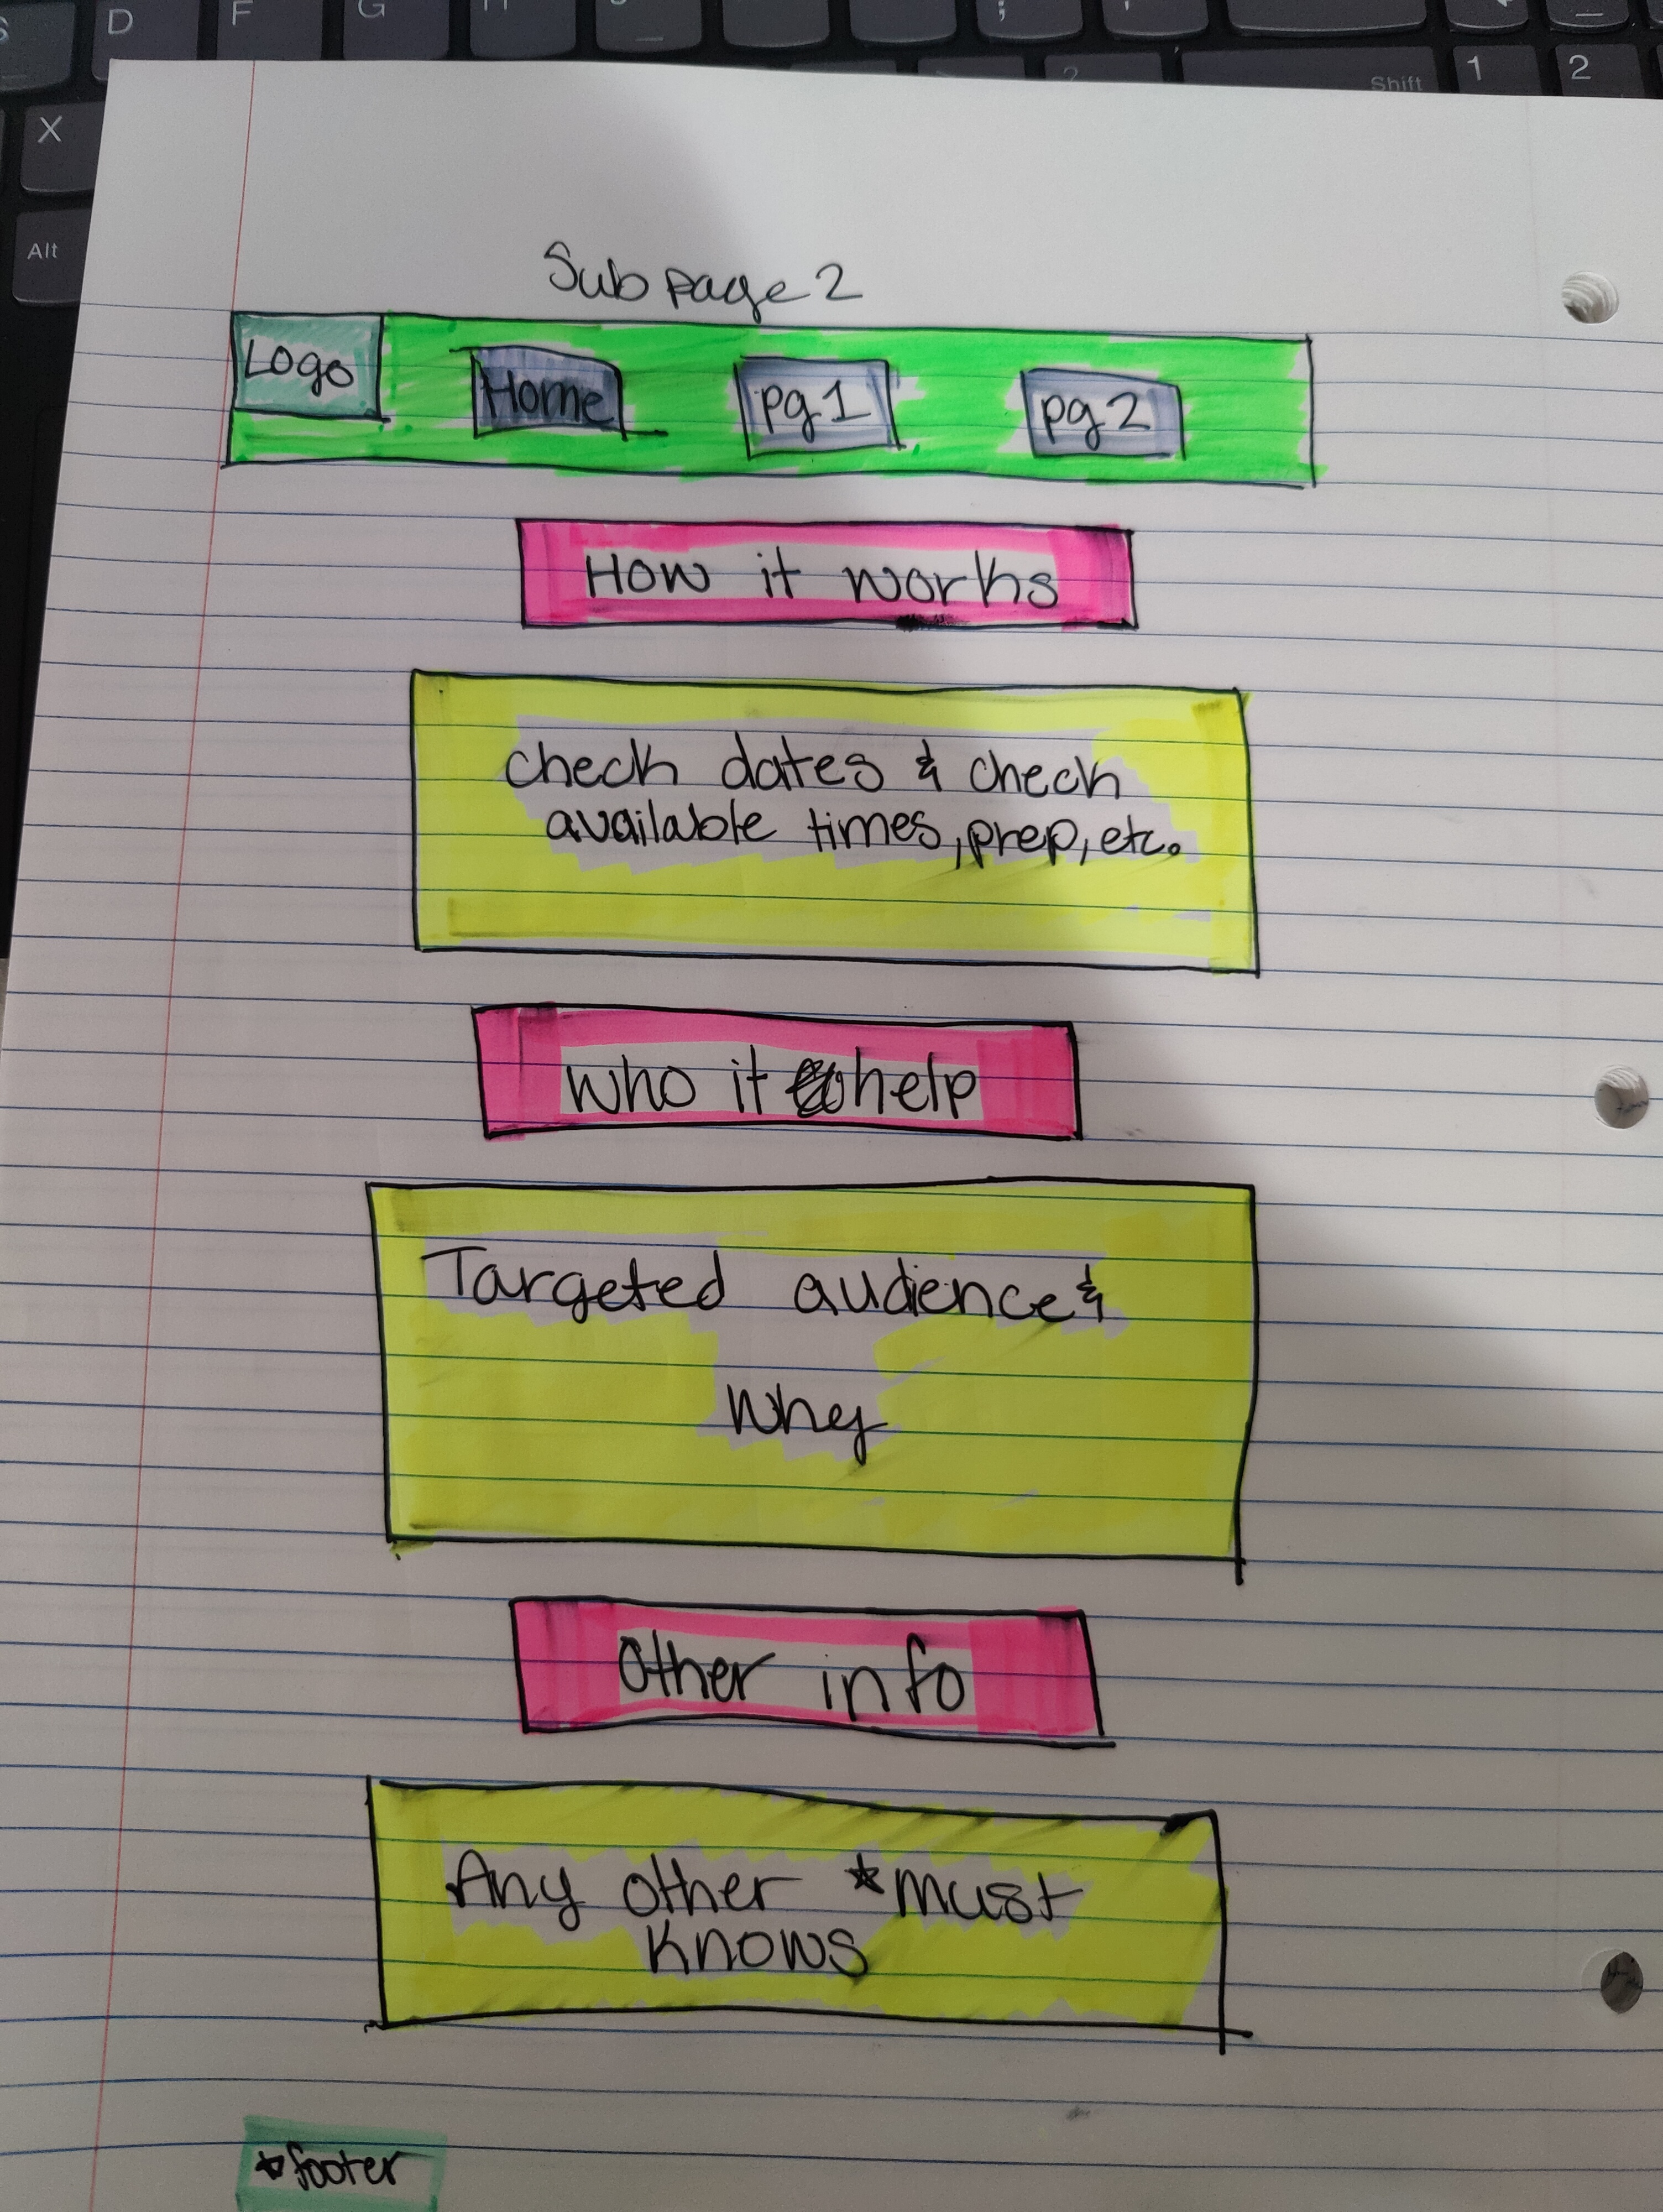 D F G
; '
Shift 1 2
X
Alt
Sub page 2
Logo Home pg 1 pg 2
How it works
check dates & check
available times, prep, etc.
who it help
Targeted audience &
why
Other info
Any other *must
knows
*footer